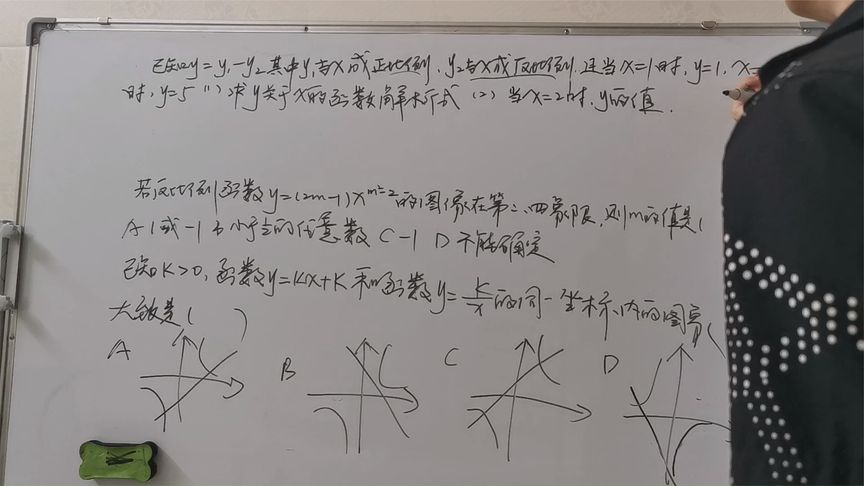 已知y=y₁-y₂其中y₁与x成正比例,y₂与x成反比例.且当x=1时,y=1,x=
时,y=5 (1)求y关于x的函数解析式 (2)当x=2时,y的值.
若反比例函数y=(2m-1)x^{m²-2}的图像在第二、四象限,则m的值是(
A 1或-1 B 小于½的任意数 C -1 D 不能确定
已知K>0,函数y=Kx+K和函数y=K/x的同一坐标内的图像(
大致是( )
A B C D